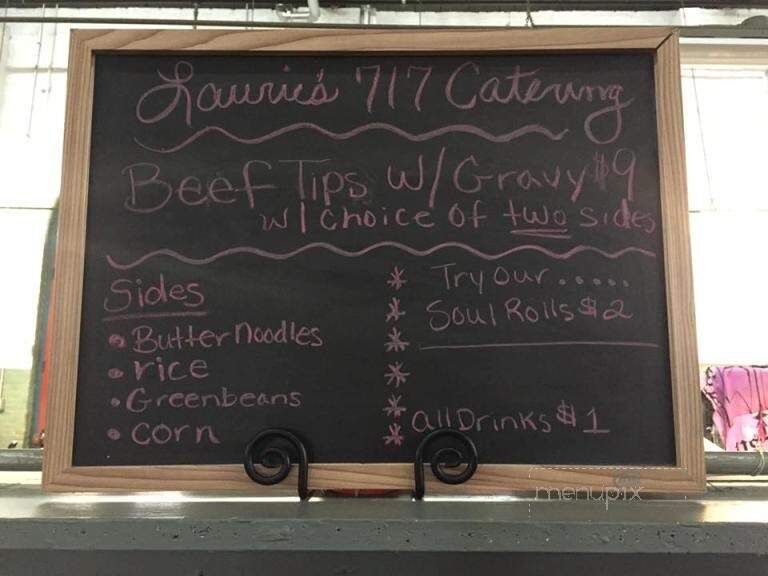 Laurie's 717 Catering
Beef Tips w/ Gravy $9
w/ choice of two sides
Sides
• Butter Noodles
• rice
• Greenbeans
• corn
* Try our .....
* Soul Rolls $2
*
*
*
* all Drinks $1
menupix